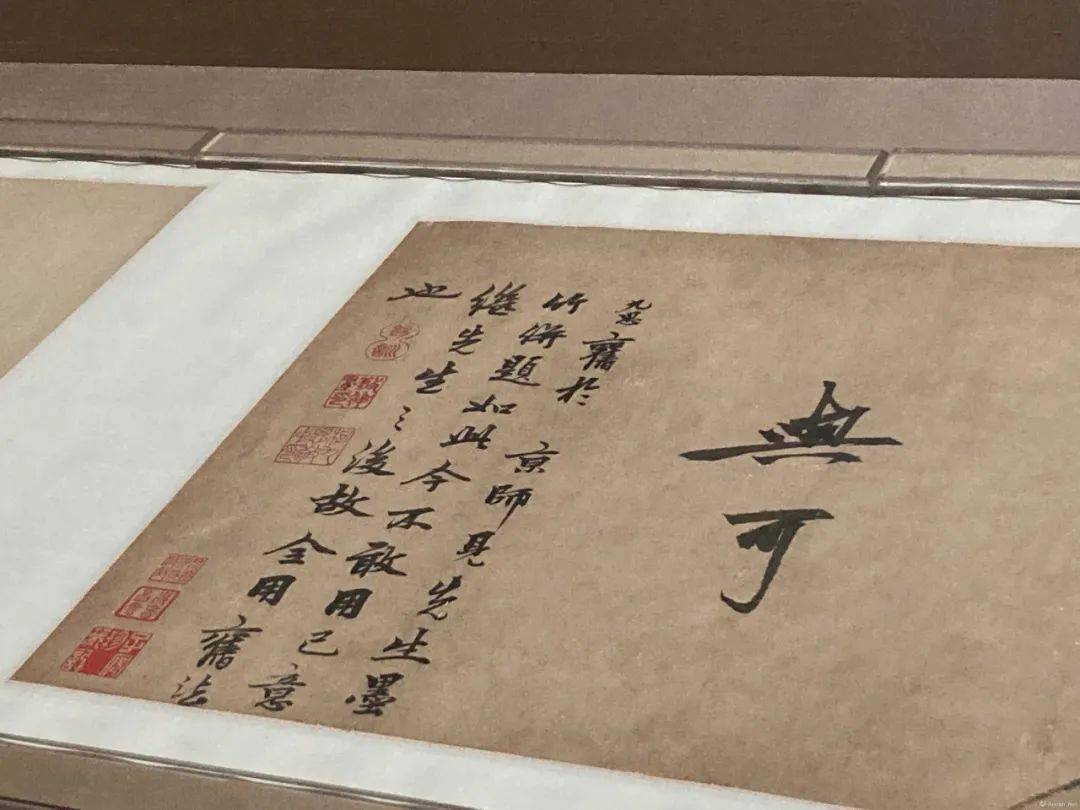 無可
九思舊於京師見先生墨
竹併題如此今不敢用己意
繼先生之後故全用舊法
也